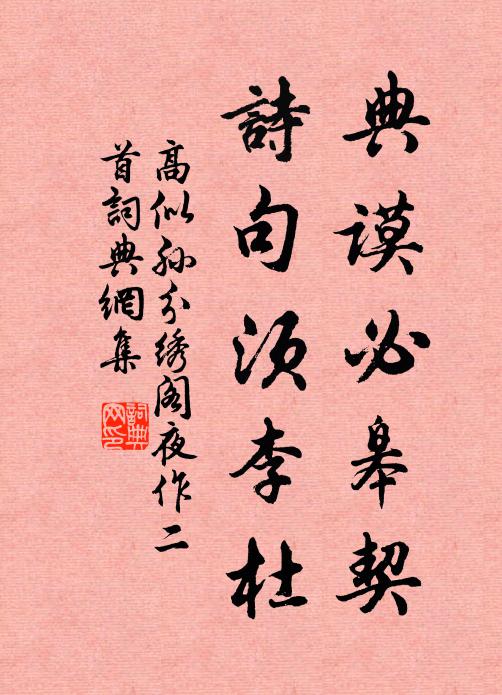 典謨必皋契
詩句須李杜
高似孫分绣阁夜作二
首詞典網集
詞典
网印